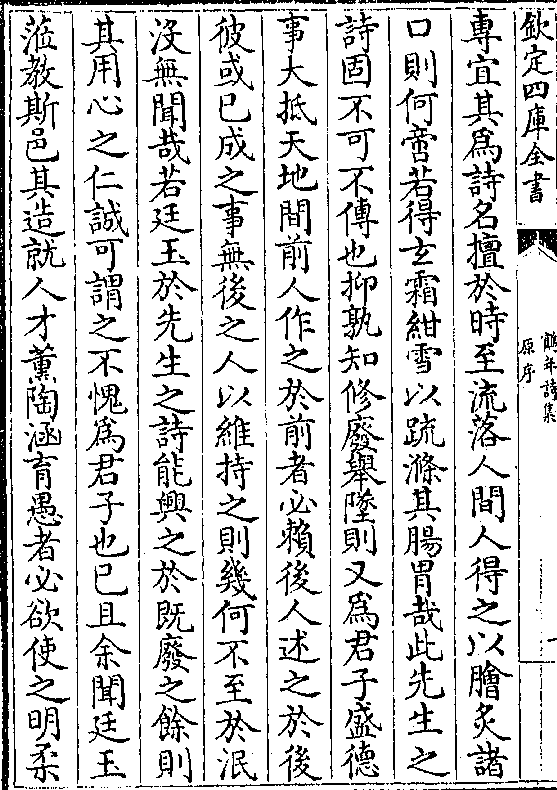 欽定四庫全書
詩集
原序
專宜其爲詩名擅於時至流落人間人得之以膾炙諸
口則何啻若得玄霜紺雪以疏滌其腸胃哉此先生之
詩固不可不傳也抑孰知修廢舉墜則又爲君子盛德
事大抵天地間前人作之於前者必賴後人述之於後
彼或已成之事無後之人以維持之則幾何不至於泯
没無聞哉若廷玉於先生之詩能興之於既廢之餘則
其用心之仁誠可謂之不愧爲君子也已且余聞廷玉
蒞教斯邑其造就人才薰陶涵育愚者必欲使之明柔